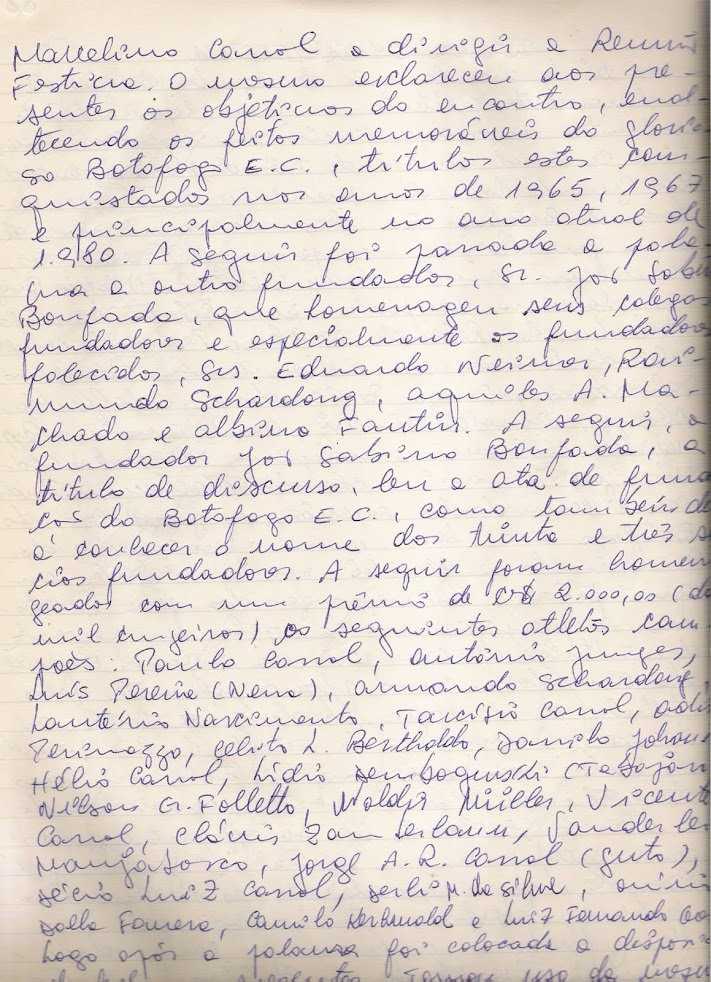 Marcelino Carrol a dirigir a Reunião
Festiva. O mesmo esclareceu aos pre-
sentes os objetivos do encontro, enal-
tecendo os feitos memoráveis do glorio-
so Botofogo E.C., títulos estes con-
quistados nos anos de 1965, 1967
e principalmente no ano atual de
1.980. A seguir foi passada a pala-
vra a outro fundador, Sr. José Sabi
Bonfada, que homenageou seus colegas
fundadores e especialmente os fundadores
falecidos, Srs. Eduardo Neimar, Rai-
mundo Schardong, Aquiles A. Ma-
chado e Albino Fantin. A seguir, o
fundador José Sabino Bonfada, a
título de discurso, leu a ata de funda
ção do Botofogo E.C., como também de
a conhecer o nome dos trinta e três só
cios fundadores. A seguir foram homen
geados com um prêmio de Cr$ 2.000,00 (do
mil cruzeiros) os seguintes atletas cam-
peões: Paulo Carrol, Antônio Junges,
Luís Pereira (Neno), Armando Schardong,
Lautério Nascimento, Tarcísio Carrol,
Celito L. Bertholdo, Danilo
Hélio Carrol, Lídio
Nilson G. Folletto, Waldir Müller, Vicente
Carrol, Clóvis Vanderlei
Jorge A.R. Carrol (Guto),
Luiz Carrol, M. da Silva,
Camilo e Luiz Fernando
Logo após a palavra foi colocada a dispos
uso da mesma